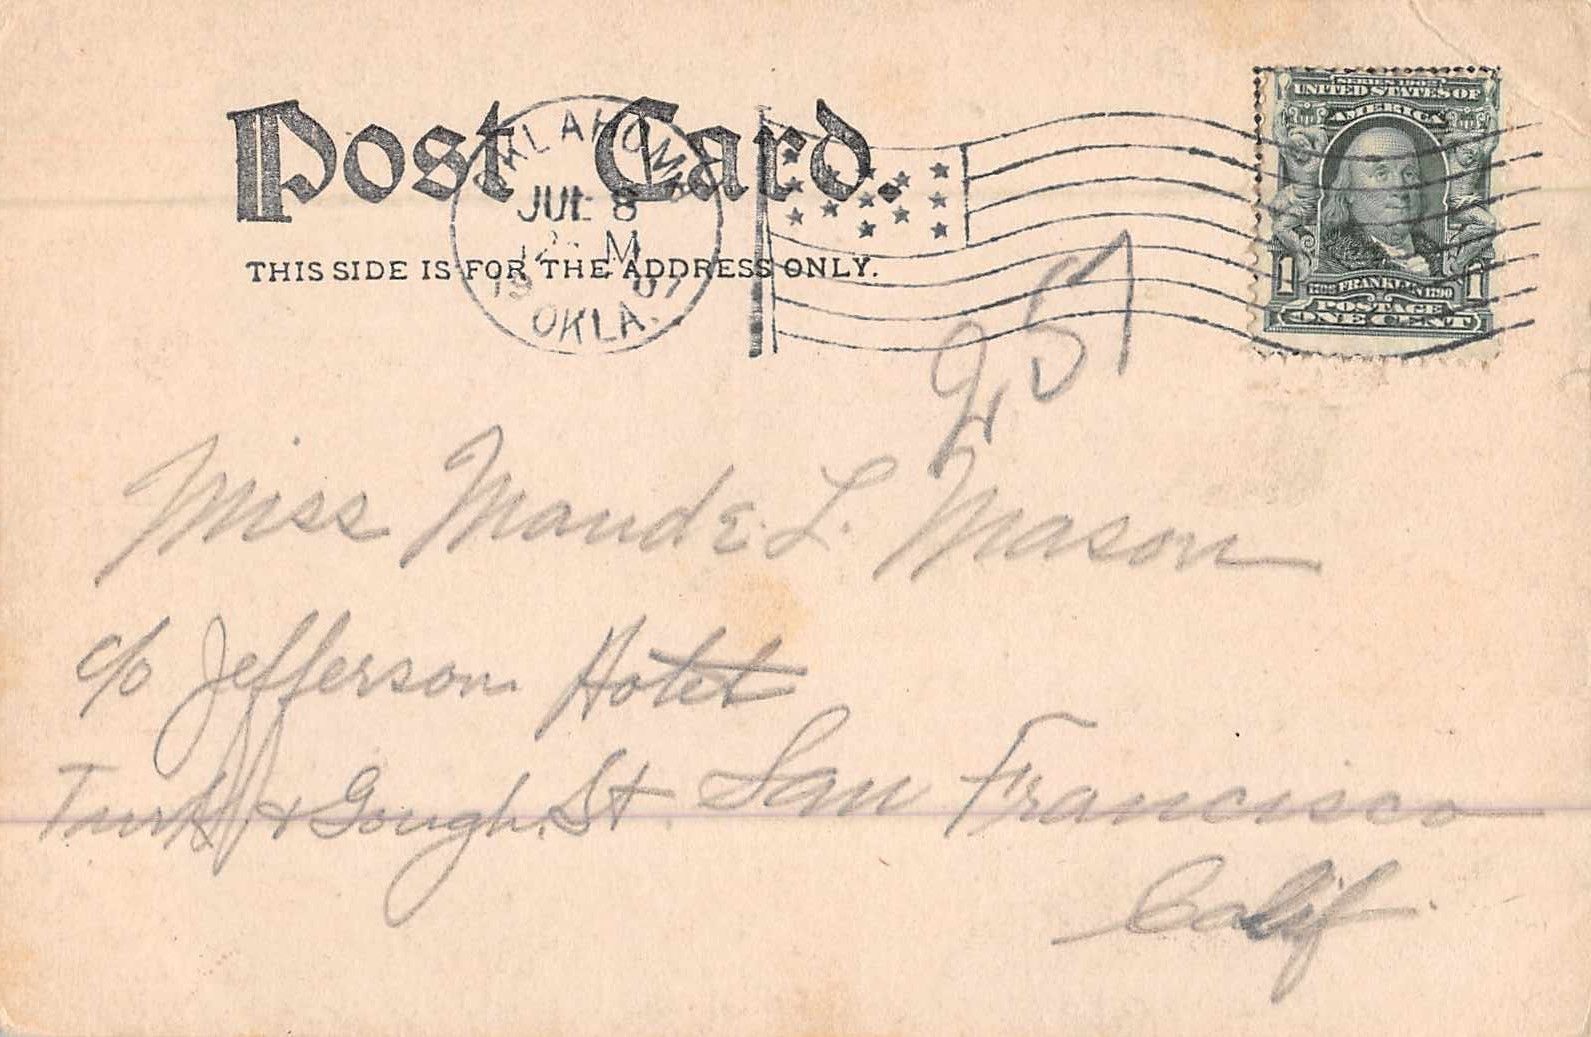 Post Card.
OKLAHOMA
JUL 8
12 M
19 07
OKLA.
THIS SIDE IS FOR THE ADDRESS ONLY.
SERIES 1902
UNITED STATES OF
AMERICA
1 1706 FRANKLIN 1790 1
POSTAGE
ONE CENT
257
Miss Maude L. Mason
c/o Jefferson Hotel
Turk & Gough. St. San Francisco
Calif.